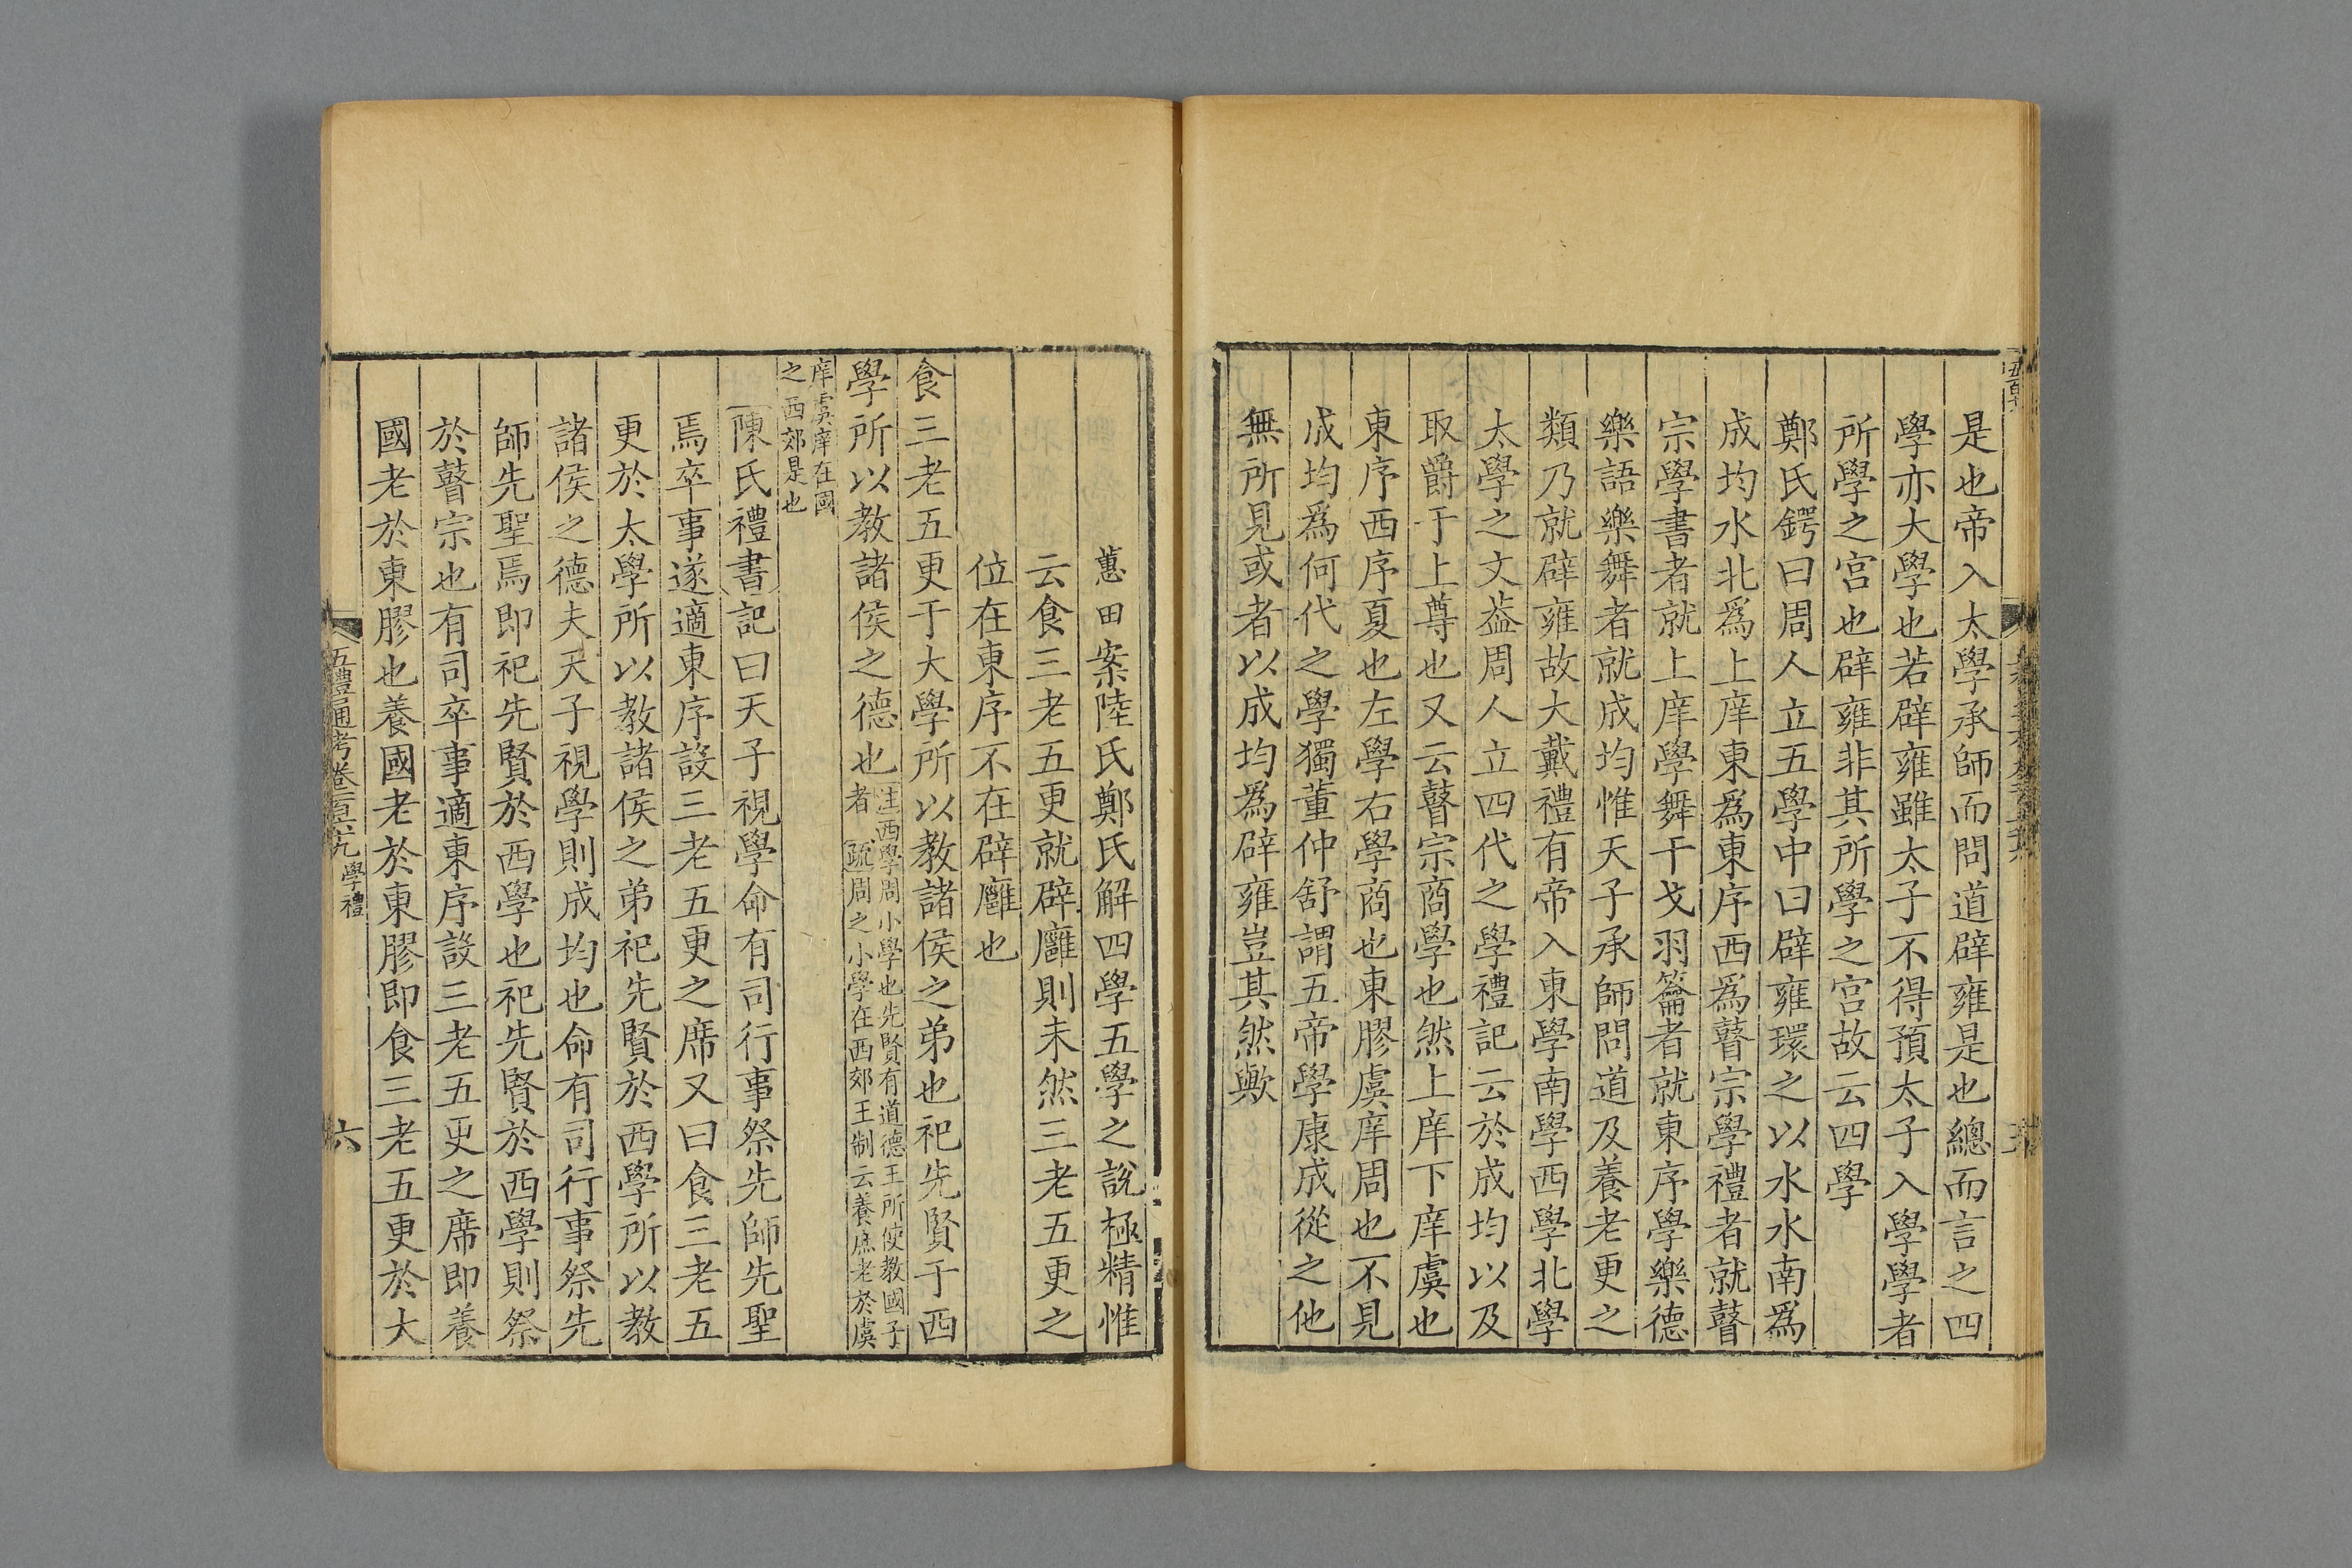 是也帝入太學承師而問道辟雍是也總而言之四
學亦大學也若辟雍雖太子不得預太子入學學者
所學之宮也辟雍非其所學之宮故云四學
鄭氏鍔曰周人立五學中曰辟雍環之以水水南爲
成均水北爲上庠東爲東序西爲瞽宗學禮者就瞽
宗學書者就上庠學舞干戈羽籥者就東序學樂德
樂語樂舞者就成均惟天子承師問道及養老更之
類乃就辟雍故大戴禮有帝入東學南學西學北學
太學之文葢周人立四代之學禮記云於成均以及
取爵于上尊也又云瞽宗商學也然上庠下庠虞也
東序西序夏也左學右學商也東膠虞庠周也不見
成均爲何代之學獨董仲舒謂五帝學康成從之他
無所見或者以成均爲辟雍豈其然歟
蕙田案陸氏鄭氏解四學五學之說極精惟
云食三老五更就辟廱則未然三老五更之
位在東序不在辟廱也
食三老五更于大學所以教諸侯之弟也祀先賢于西
學所以教諸侯之德也
注西學周小學也先賢有道德王所使教國子
者 疏周之小學在西郊王制云養庶老於虞
庠虞庠在國
之西郊是也
陳氏禮書記曰天子視學命有司行事祭先師先聖
焉卒事遂適東序設三老五更之席又曰食三老五
更於太學所以教諸侯之弟祀先賢於西學所以教
諸侯之德夫天子視學則成均也命有司行事祭先
師先聖焉即祀先賢於西學也祀先賢於西學則祭
於瞽宗也有司卒事適東序設三老五更之席即養
國老於東膠也養國老於東膠即食三老五更於大
五禮通考卷一百六十九 學禮
六